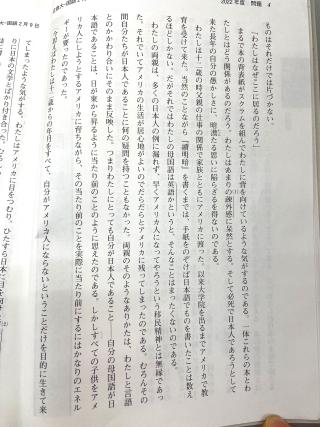 2022年度 問題 4
ものはそれだけでは片づかない。
「わたしはなぜここに居るのだろう」
まるで本の背表紙がスクラムを組んでわたしに背を向けているような気がするのである。一体これらの本とわ
たしとはどう関係があるのだろう。わたしはあまりの疎外感に呆然とする。そして必死で日本人であろうとして
来た長年の自分の愚かしさに、暗澹たる思いに陥らざるを得ないのである。
わたしは十二歳の時父親の仕事の関係で家族とともにアメリカに渡った。以来大学院を出るまでアメリカで教
育を受けて来た。当然のことながら『續明暗』を書くまでは、手紙をのぞけば日本語でものを書いたことは数え
るほどしかない。だがそれではわたしの母国語は英語かというと、そんなことはまったくないのである。
わたしの両親は、多くの日本人の例に漏れず、早くアメリカ人になってやろうという移民精神とは無縁であっ
た。それでいてアメリカの生活が居心地がよいのでだらだらとアメリカに残ってしまったのである。むろんその
間自分たちが日本人であることに何の疑問を持つこともなかった。両親のそのようなありかたは、わたしと言語
とのかかわり合いにそのまま反映した。つまりわたしにとっても自分が日本人であること――自分の母国語が日
本語であることは、日が東から昇るように当たり前のことのように思えたのである。しかしすべての子供をアメ
リカ人にしようとするアメリカに育ちながら、その当たり前のことを実際に当たり前にするにはかなりのエネル
ギーが要ったのであった。
わたしは十二歳からの年月をすべて、自分がアメリカ人にならないということだけを目的に生きて来
てしまったような気がする。わたしはアメリカに目をつむり、ひたすら日本に